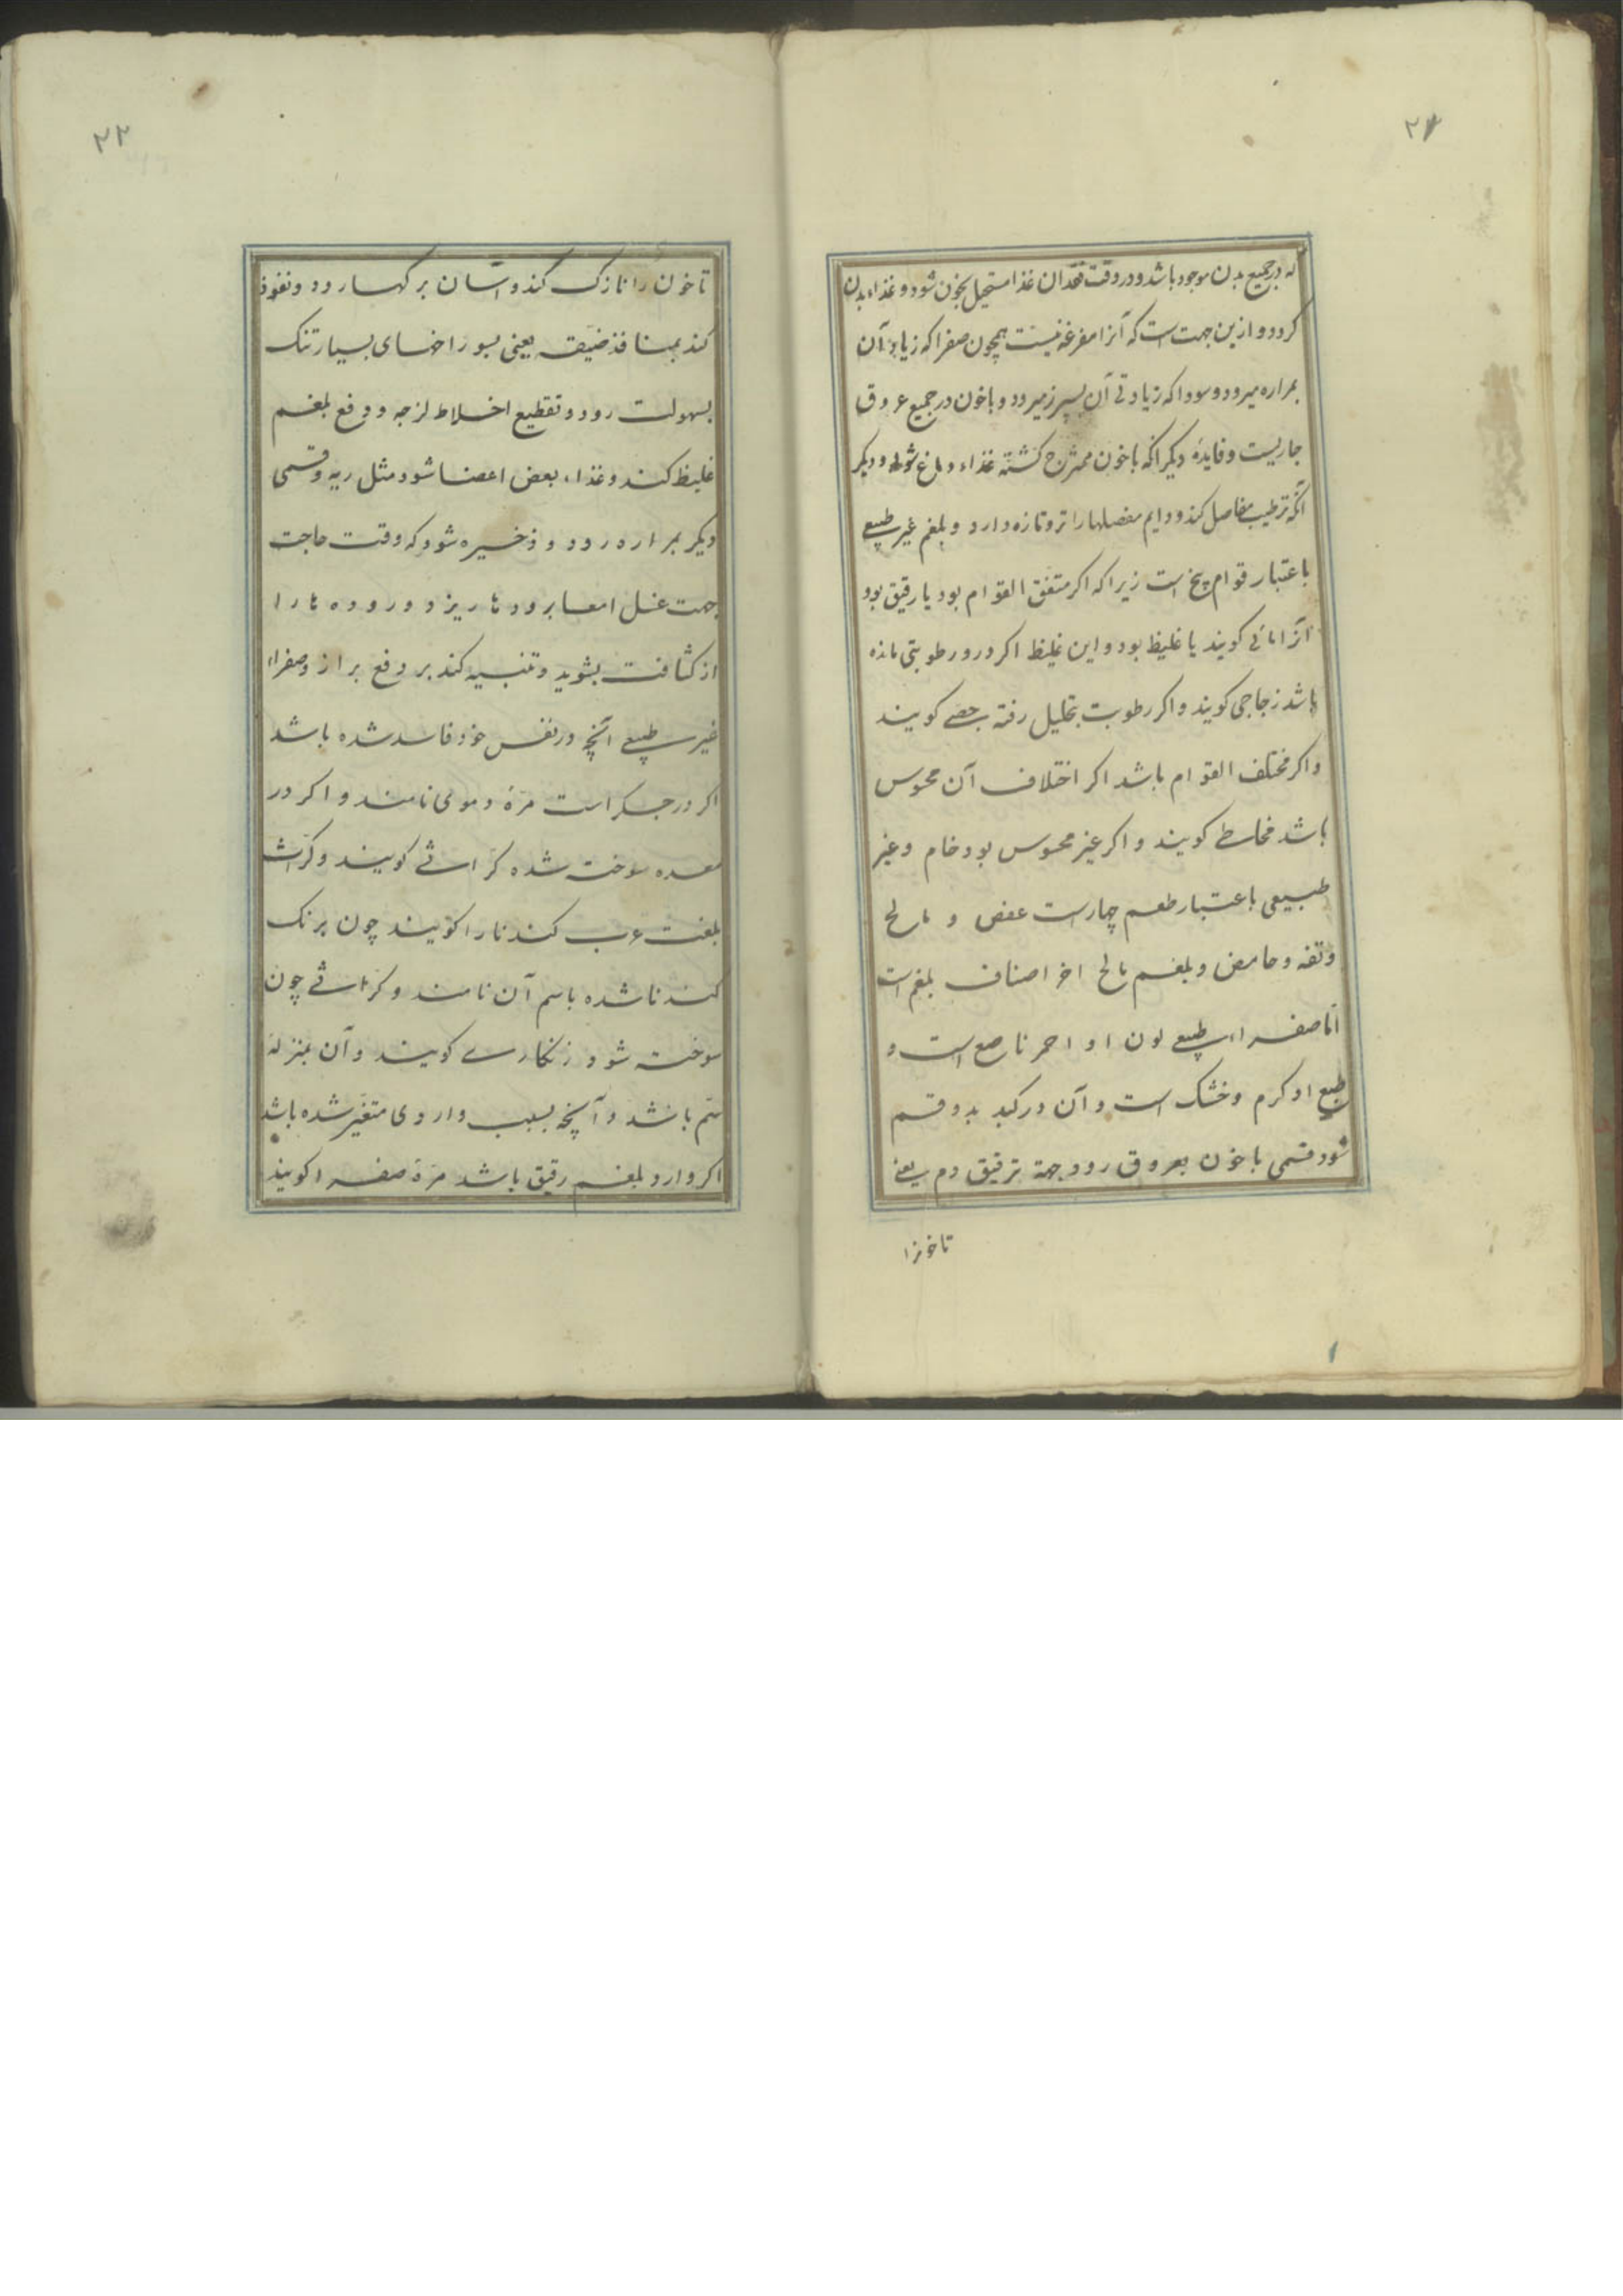 ۲۲
که در جمیع بدن موجود باشد و در وقت فقدان غذا مستحیل بخون شود و غذاء بدن
کردد و ازین جهت است که آنرا مفرغه نیست همچون صفرا که زیادتی آن
بمراره میرود و سودا که زیادتی آن بسپرز میرود و با خون در جمیع عروق
جاریست و فایدهٔ دیکر آنکه با خون ممتزج کشته غذاء دماغ شود و دیکر
آنکه ترطیب مفاصل کند و دایم مفصلها را تر و تازه دارد و بلغم غیر طبیعی
باعتبار قوام پنج است زیرا که اکر متفق القوام بود یا رقیق بود
آنرا مائی کویند یا غلیظ بود و این غلیظ اکر درو رطوبتی مانده
باشد زجاجی کویند و اکر رطوبت بتحلیل رفته جصی کویند
و اکر مختلف القوام باشد اکر اختلاف آن محسوس
باشد مخاطی کویند و اکر غیر محسوس بود خام و غیر
طبیعی باعتبار طعم چهارست عفص و مالح
و تفه و حامض و بلغم مالح احر اصناف بلغم است
اما صفراء طبیعی لون او احمر ناصع است و
طبع او کرم و خشک است و آن در کبد بدو قسم
شود قسمی با خون بعروق رود جهة ترقیق دم یعنی
تا خونرا
۲۳
تا خون را نازک کند و آسان بر کها رود و نفوذ
کند بمنافذ ضیقه یعنی بسوراخهای بسیار تنک
بسهولت رود و تقطیع اخلاط لزجه و دفع بلغم
غلیظ کند و غذاء بعض اعضا شود مثل ریه و قسمی
دیکر بمراره رود و ذخیره شود که وقت حاجت
جهت غسل امعا برودها ریزد و رودها را
از کثافت بشوید و تنبیه کند بر دفع براز و صفراء
غیر طبیعی آنچه در نفس خود فاسد شده باشد
اکر در جکر است مرهٔ دموی نامند و اکر در
معده سوخته شده کراثی کویند و کراث
بلغت عرب کندنا را کویند چون برنک
کندنا شده باسم آن نامند و کراثی چون
سوخته شود زنکاری کویند و آن بمنزله
سم باشد و آنچه بسبب واردی متغیر شده باشد
اکر وارد بلغم رقیق باشد مرهٔ صفرا کویند